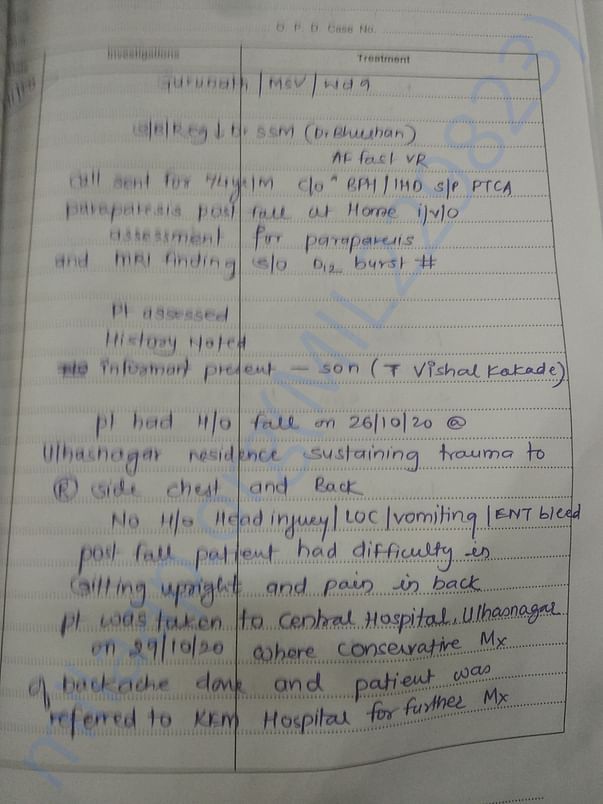 O. P. D. Case No.
Investigations Treatment
Gurunath / MSV / Wd 9
S/B/Reg ↓ Dr SSM (Dr Bhushan)
AF fast VR
Call sent for 74yr/M c/o BPH / IHD s/p PTCA
paraparesis post fall at Home i/v/o
assessment for paraparesis
and MRI finding s/o D12 burst #
Pt assessed
History Noted
informant present – son (Vishal Kakade)
pt had H/o fall on 26/10/20 @
Ulhasnagar residence sustaining trauma to
(R) side chest and Back
No H/o Head injuey / LOC / vomiting / ENT bleed
post fall patient had difficulty in
sitting upright and pain in back
pt was taken to Central Hospital, Ulhasnagar
on 29/10/20 where conservative Mx
of backache done and patient was
referred to KEM Hospital for further Mx
milaap.org(MIL229823)